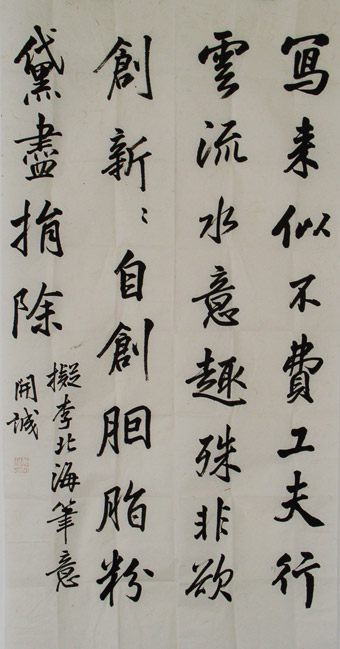 寫来似不費工夫行
雲流水意趣殊非欲
創新〻自創胭脂粉
黛盡捐除
擬李北海筆意
開誠